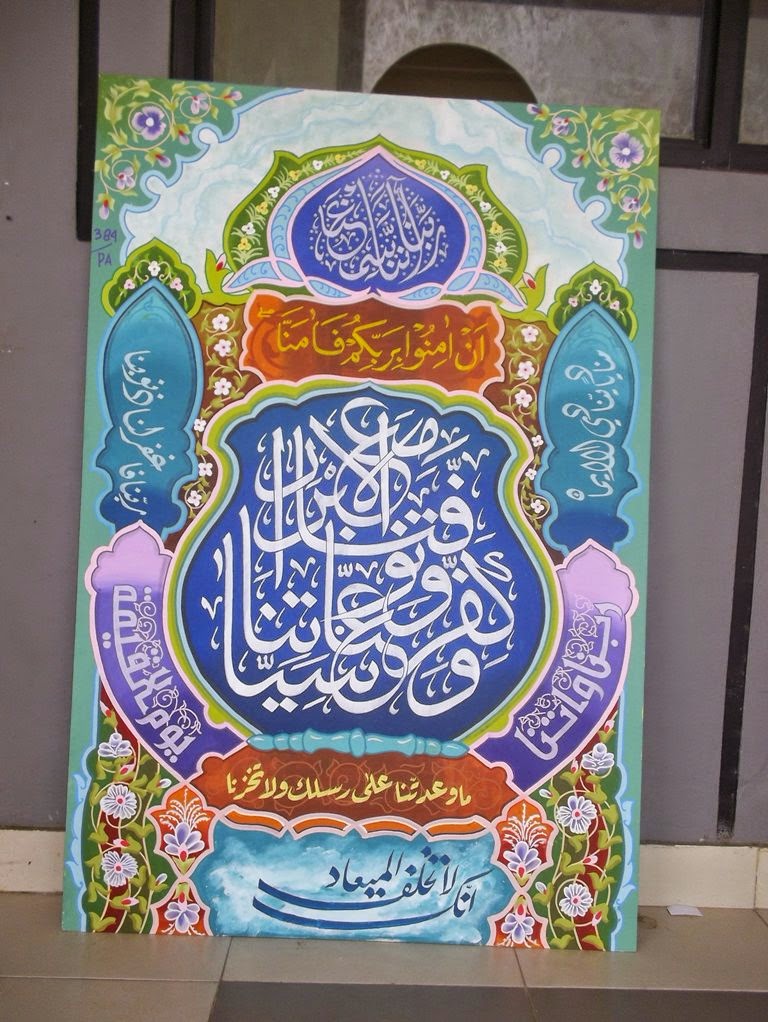 384
PA
ربنا اننا سمعنا
مناديا ينادي للايمان
اَنْ اٰمِنُوْا بِرَبِّكُمْ فَاٰمَنَّا
ربنا فاغفر لنا ذنوبنا
وكفّر عنّا سيّاٰتنا وتوفّنا مع الابرار
ربنا واٰتنا
ما وعدتّنا على رسلك ولا تخزنا
يوم القيمة
انّك لا تخلف الميعاد